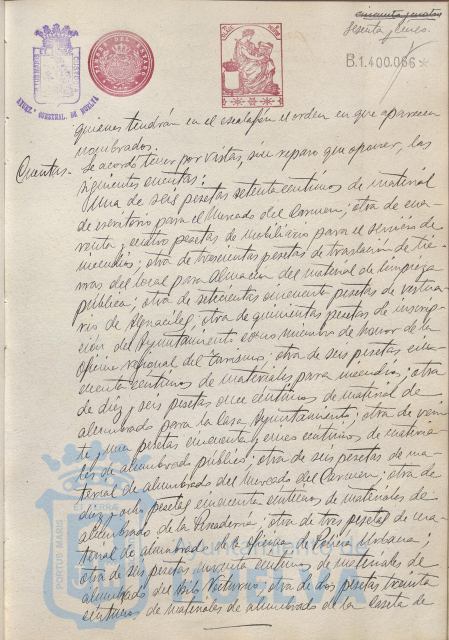 cincuenta y cuatro
Sesenta y cinco.
B.1.400.066*
TIMBRE DEL ESTADO
PORTUS MARIS ET TERRAE CUSTODIA
AYUNT. DE HUELVA
quienes tendrán en el escalafón el orden en que aparecen
nombrados.
Cuentas - Se acordó tener por vistas, sin reparo que oponer, las
siguientes cuentas:
Una de seis pesetas setenta céntimos de material
de escritorio para el Mercado del Carmen; otra de cua-
renta y cuatro pesetas de mobiliario para el servicio de
incendios; otra de trescientas pesetas de traslación de tie-
rras del local para Almacén del material de limpieza
pública; otra de setecientas cincuenta pesetas de vestua-
rio de Alguaciles; otra de quinientas pesetas de inscrip-
ción del Ayuntamiento como miembro de honor de la
Oficina regional del turismo; otra de seis pesetas cin-
cuenta céntimos de materiales para incendios; otra
de diez y seis pesetas once céntimos de material de
alumbrado para la Casa Ayuntamiento; otra de vein
te y una pesetas cincuenta y cinco céntimos de materia-
les de alumbrado público; otra de seis pesetas de ma-
terial de alumbrado del Mercado del Carmen; otra de
diez y ocho pesetas cincuenta céntimos de materiales de
alumbrado de la; otra de tres pesetas de ma-
terial de alumbrado de la oficina de Policía Urbana;
otra de seis pesetas noventa céntimos de materiales de
alumbrado del Asilo Nocturno; otra de dos pesetas treinta
céntimos de materiales de alumbrado de la Caseta de
PORTUS MARIS ET TERRAE
Ayuntamiento de
HUELVA